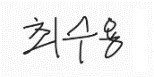 최수용